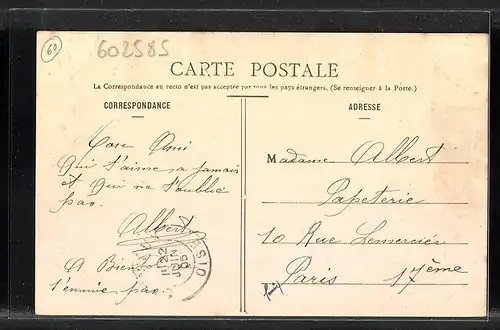 60
602585
CARTE POSTALE
La Correspondance au recto n'est pas acceptée par tous les pays étrangers. (Se renseigner à la Poste.)
CORRESPONDANCE
ADRESSE
Ton Ami
Qui t'aime a jamais
et Qui ne t'oublie
pas.
Albert
A Bientôt
t'ennuie pas
Madame Albert
Papeterie
10 Rue Lemercier
Paris 17ème
22
JUIN
05
OISE